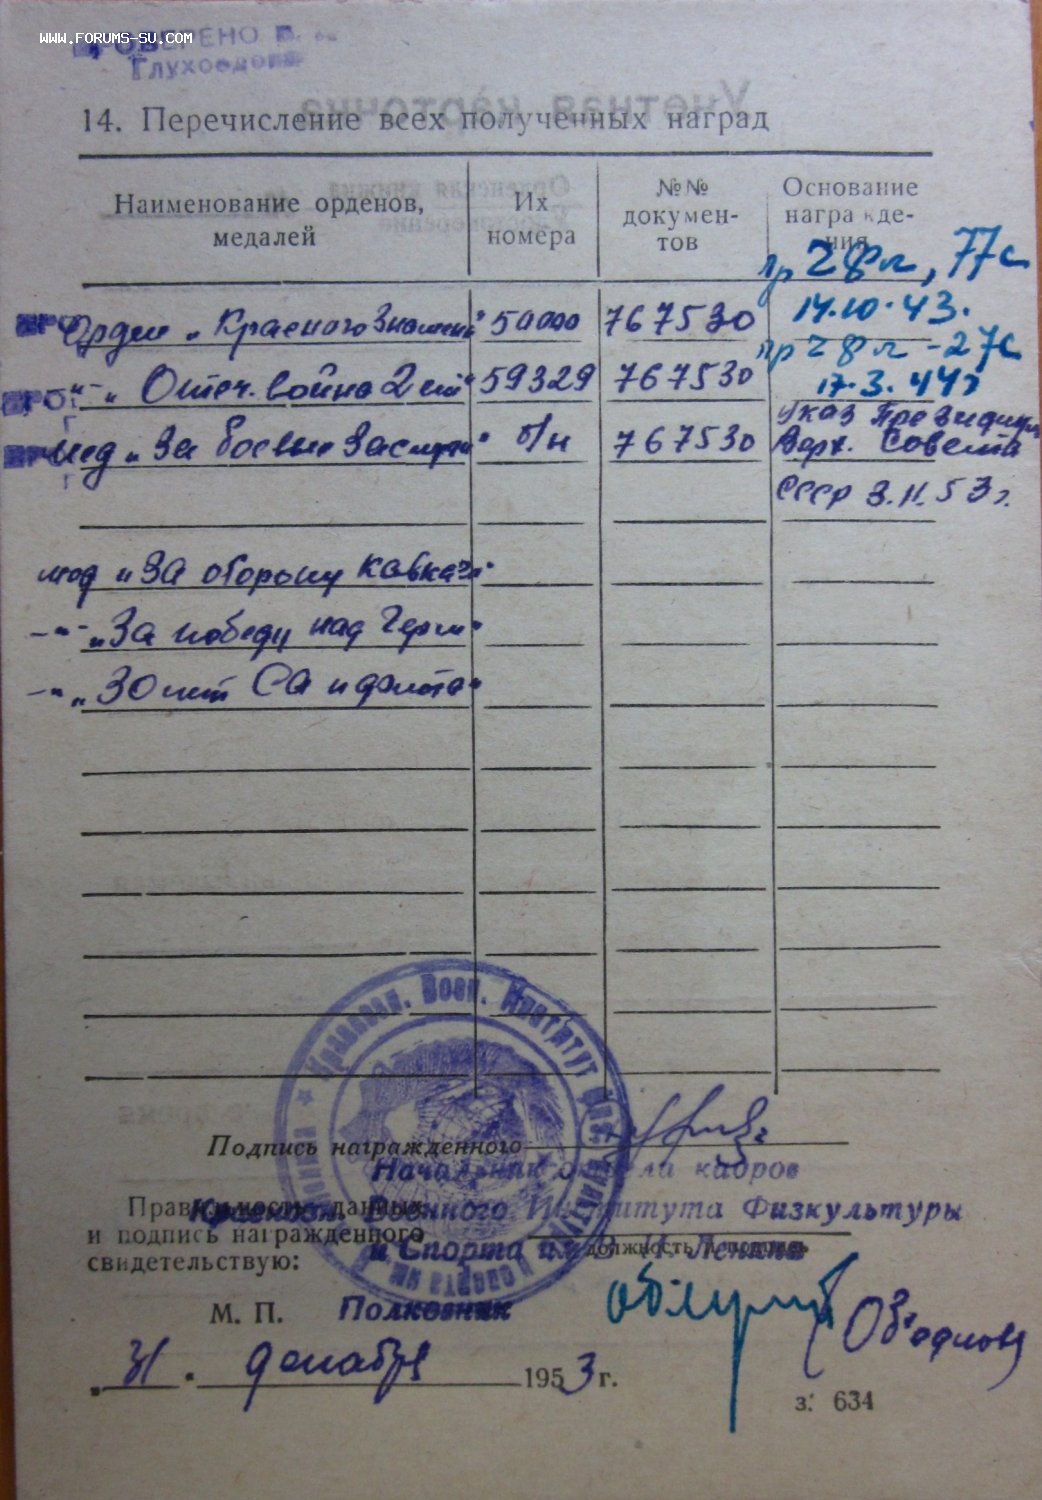 WWW.FORUMS-SU.COM
14. Перечисление всех полученных наград
Наименование орденов, медалей
Их номера
№№ докумен-
тов
Основание
награжде-
ния
Орден „Красного Знамени" 50000 767530 пр 28 гл, 77с
14.10.43.
-"- „Отеч. война 2 ст" 59329 767530 пр 28 гл -27с
17.3.44г
мед „За боевые заслуги" б/н 767530 Указ Президиума
Верх. Совета
СССР 3.11.53г.
мед „За оборону Кавказа"
-"- „За победу над Герм"
-"- „30 лет СА и флота"
Краснозн. Воен. Институт Физ. и спорта им.
Подпись награжденного
Начальник отдела кадров
Правильность данных
Краснозн. Военного Института Физкультуры
и подпись награжденного
и Спорта им В. И. Ленина
свидетельствую:
М. П. Полковник
„31" декабря 1953 г.
З. 634